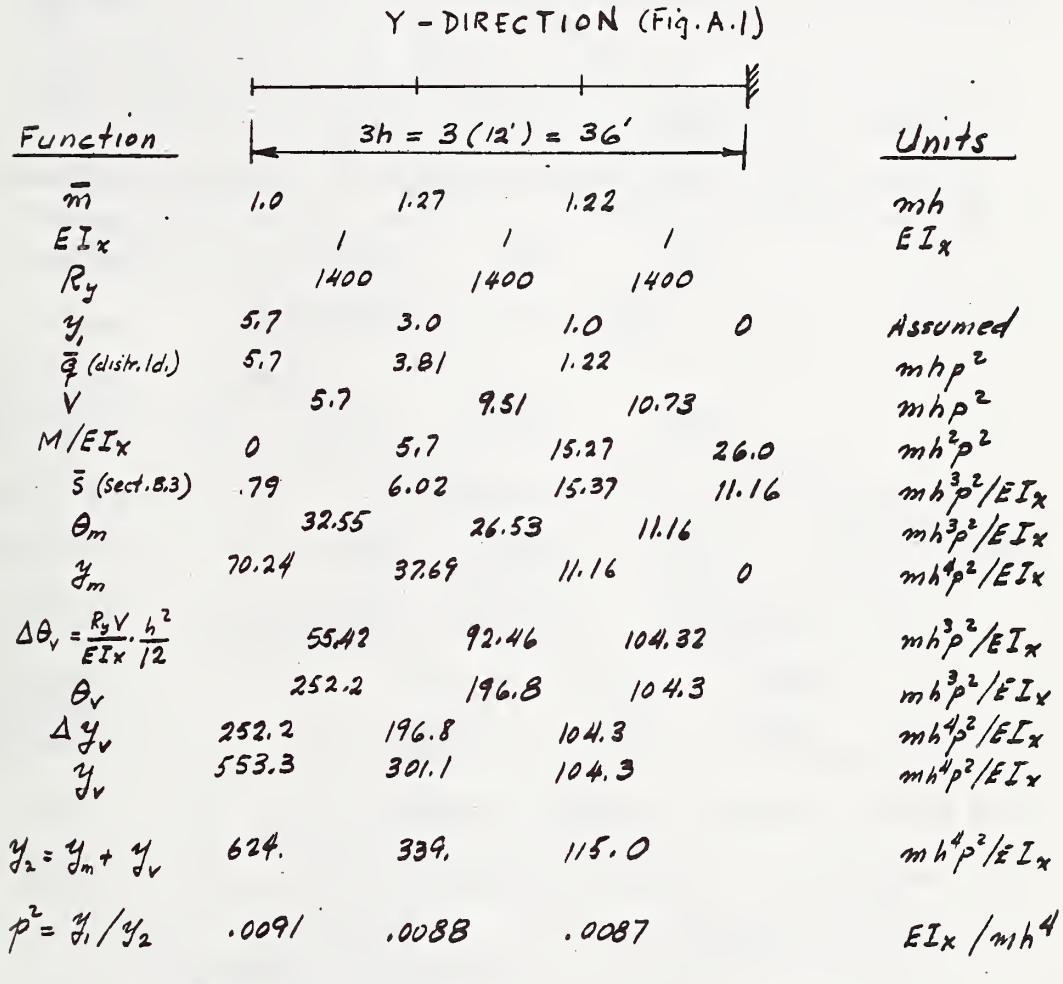 Y - DIRECTION (Fig. A.1)
Function
3h = 3 (12') = 36'
Units
m̄ 1.0 1.27 1.22 mh
EIx 1 1 1 EIx
Ry 1400 1400 1400
y₁ 5.7 3.0 1.0 0 Assumed
q̄ (distr. ld.) 5.7 3.81 1.22 mhp²
V 5.7 9.51 10.73 mhp²
M/EIx 0 5.7 15.27 26.0 mh²p²
s̄ (sect. B.3) .79 6.02 15.37 11.16 mh³p²/EIx
θm 32.55 26.53 11.16 mh³p²/EIx
ym 70.24 37.69 11.16 0 mh⁴p²/EIx
Δθv = RyV/EIx · h²/12 55.42 92.46 104.32 mh³p²/EIx
θv 252.2 196.8 104.3 mh³p²/EIx
Δyv 252.2 196.8 104.3 mh⁴p²/EIx
yv 553.3 301.1 104.3 mh⁴p²/EIx
y₂ = ym + yv 624. 339. 115.0 mh⁴p²/EIx
p² = y₁/y₂ .0091 .0088 .0087 EIx/mh⁴